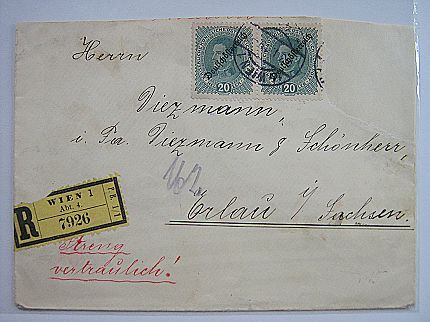 Herrn
Deutschösterreich
20
20
WIEN
Diezmann,
i. Fa. Diezmann & Schönherr,
Erlau i/ Sachsen.
R
WIEN 1
Abt. 4.
7926
Streng
vertraulich!